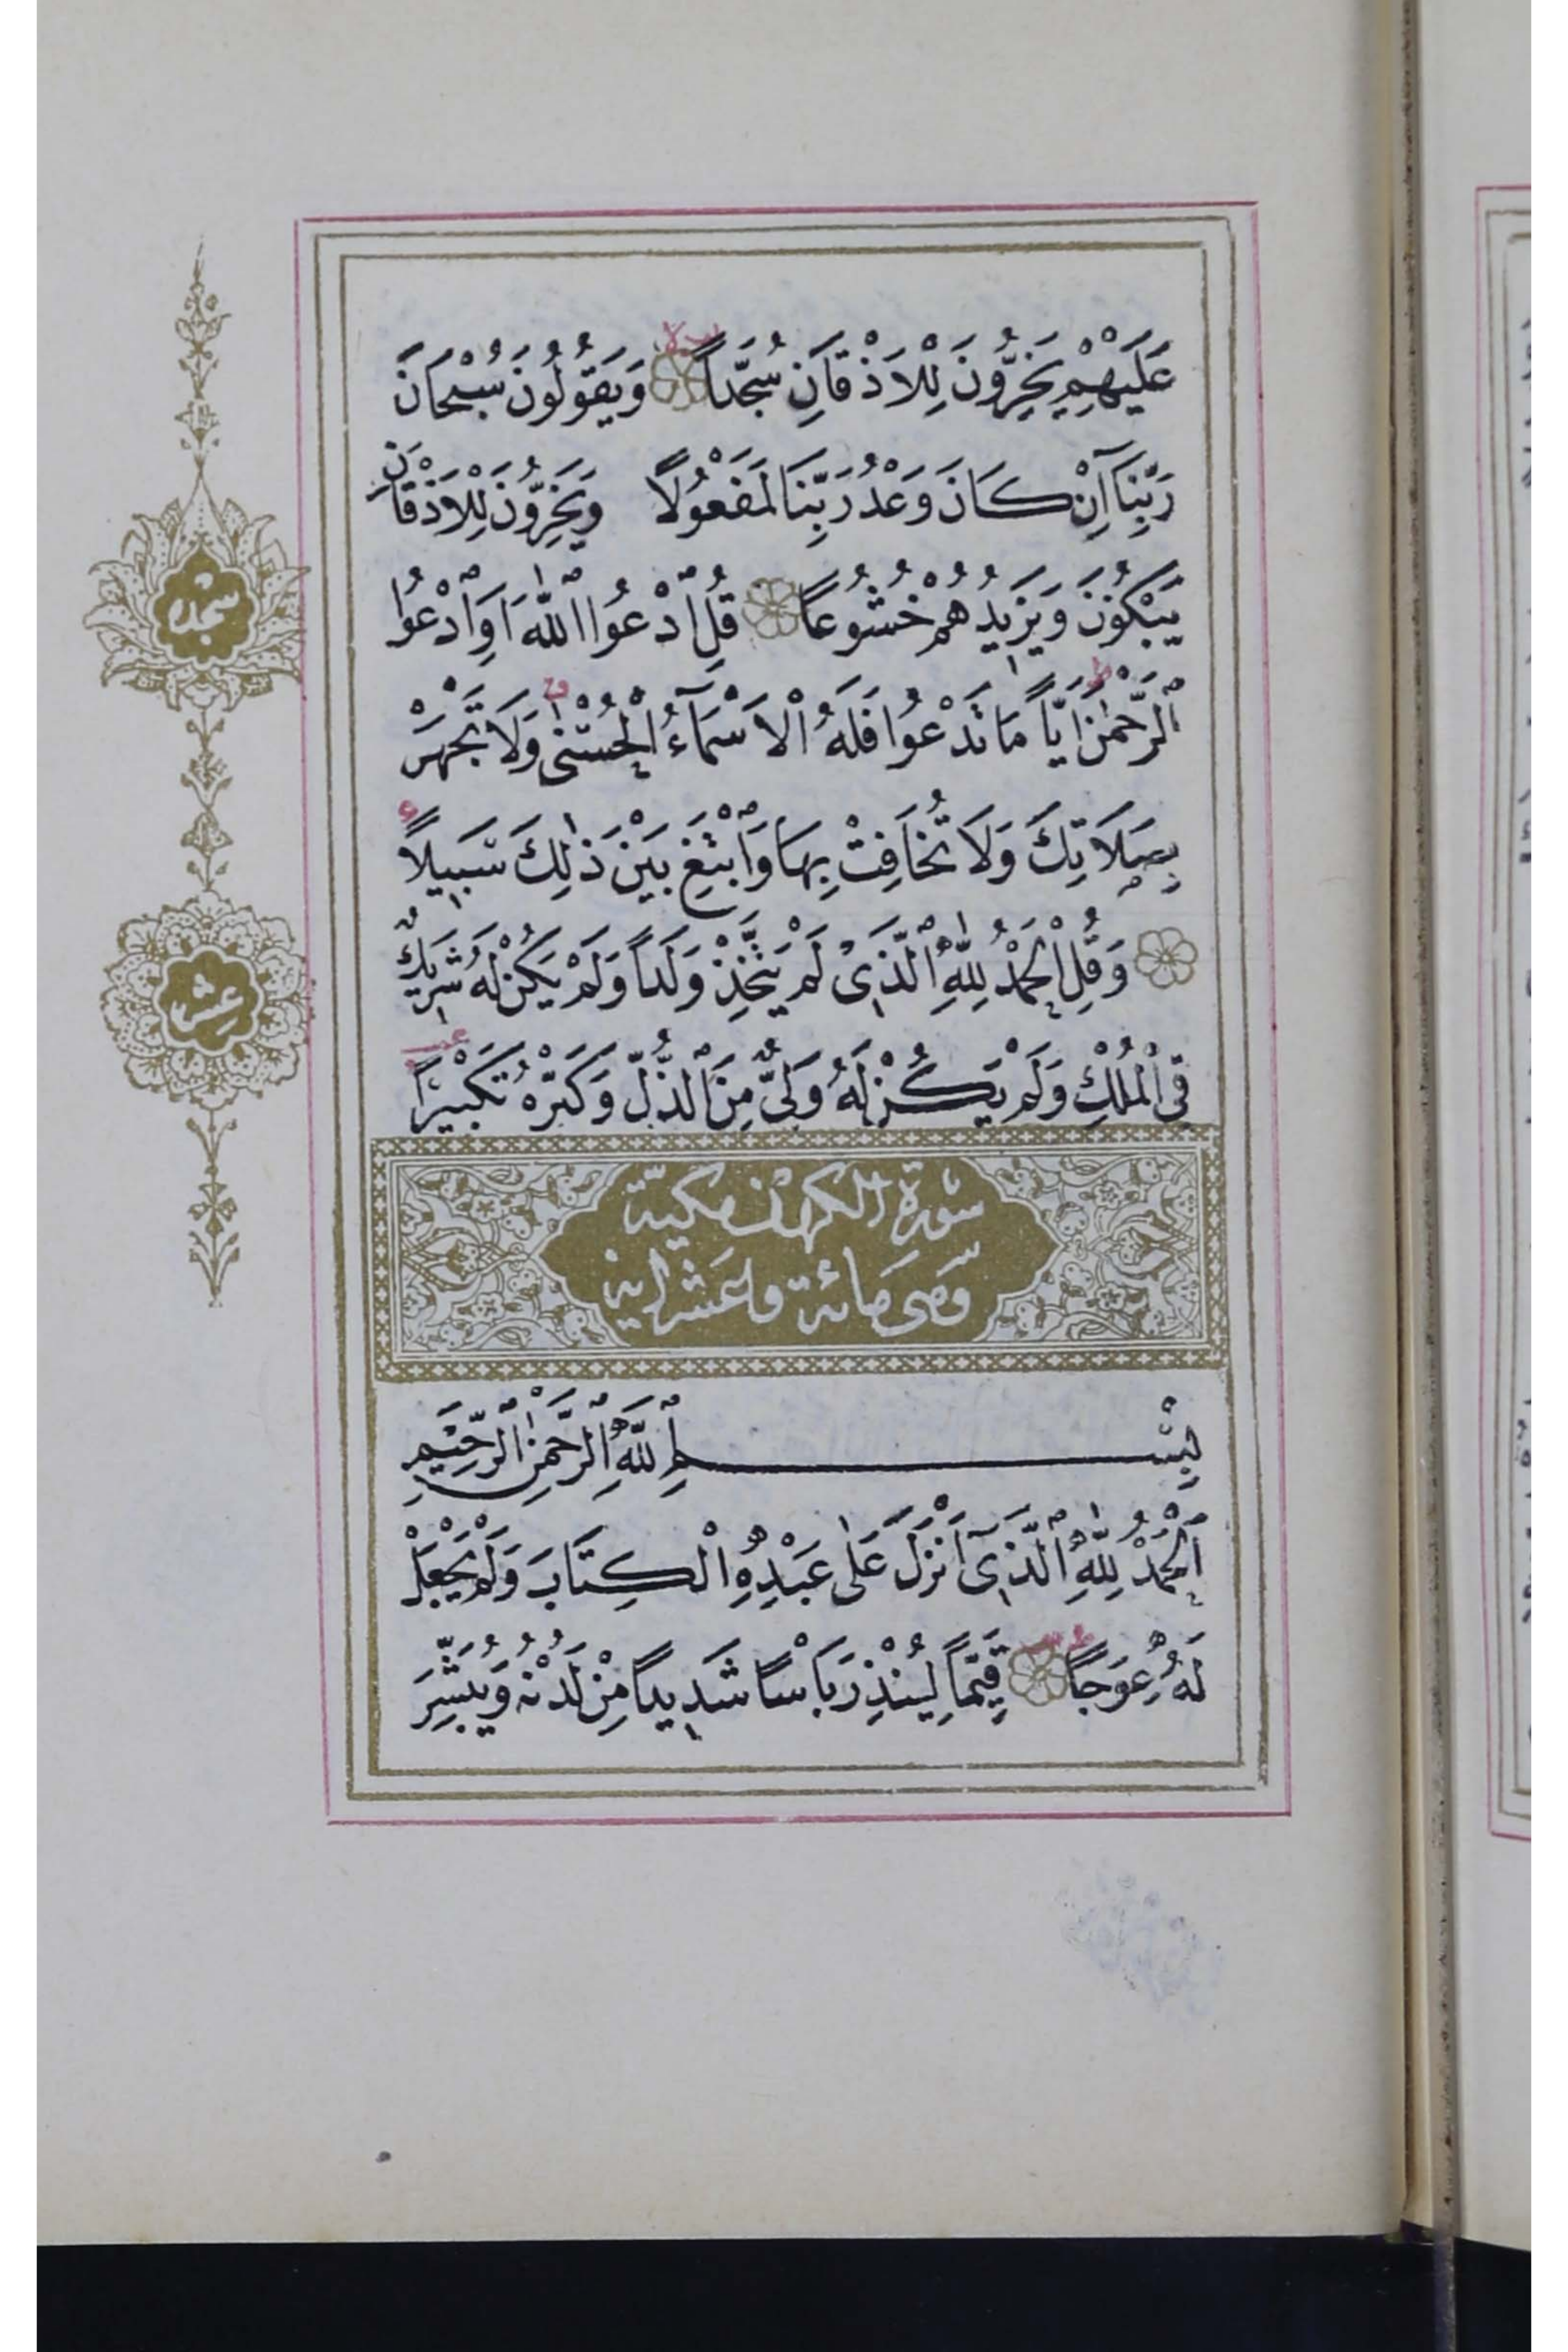 عَلَيْهِمْ يَخِرُّونَ لِلْاَذْقَانِ سُجَّداً وَيَقُولُونَ سُبْحَانَ
رَبِّنَا اِنْ كَانَ وَعْدُ رَبِّنَا لَمَفْعُولًا وَيَخِرُّونَ لِلْاَذْقَانِ
يَبْكُونَ وَيَزِيدُهُمْ خُشُوعاً قُلِ ٱدْعُوا اللّٰهَ اَوِ ٱدْعُوا
ٱلرَّحْمٰنَ اَيّاً مَا تَدْعُوا فَلَهُ الْاَسْمَآءُ الْحُسْنٰى وَلَا تَجْهَرْ
بِصَلَاتِكَ وَلَا تُخَافِتْ بِهَا وَٱبْتَغِ بَيْنَ ذٰلِكَ سَبِيلًا
وَقُلِ الْحَمْدُ لِلّٰهِ ٱلَّذِى لَمْ يَتَّخِذْ وَلَداً وَلَمْ يَكُنْ لَهُ شَرِيكٌ
فِى الْمُلْكِ وَلَمْ يَكُنْ لَهُ وَلِىٌّ مِنَ ٱلذُّلِّ وَكَبِّرْهُ تَكْبِيرًا
سورة الكهف مكية
وهى مائة وعشر اية
بِسْمِ ٱللّٰهِ ٱلرَّحْمٰنِ ٱلرَّحِيمِ
اَلْحَمْدُ لِلّٰهِ ٱلَّذِىٓ اَنْزَلَ عَلٰى عَبْدِهِ الْكِتَابَ وَلَمْ يَجْعَلْ
لَهُ عِوَجًا قَيِّمًا لِيُنْذِرَ بَاْسًا شَدِيدًا مِنْ لَدُنْهُ وَيُبَشِّرَ
سجده
عشر